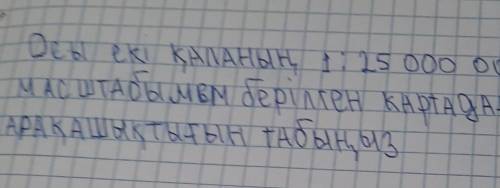 Осы екі қаланың 1:25 000 00
масштабымвм берілген картада-
арақашықтығын табыңыз